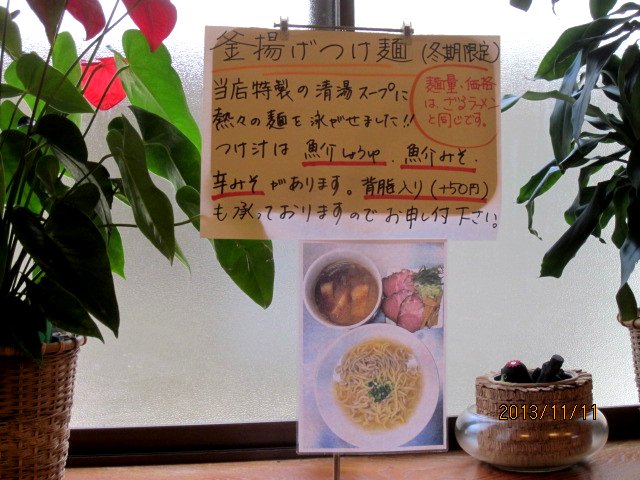 釜揚げつけ麺(冬期限定)
当店特製の清湯スープに
熱々の麺を泳がせました!!
つけ汁は 魚介しょうゆ、魚介みそ、
辛みそがあります。背脂入り(+50円)
も承っておりますのでお申し付下さい。
麺量、価格
は、ざるラーメン
と同じです。
2013/11/11